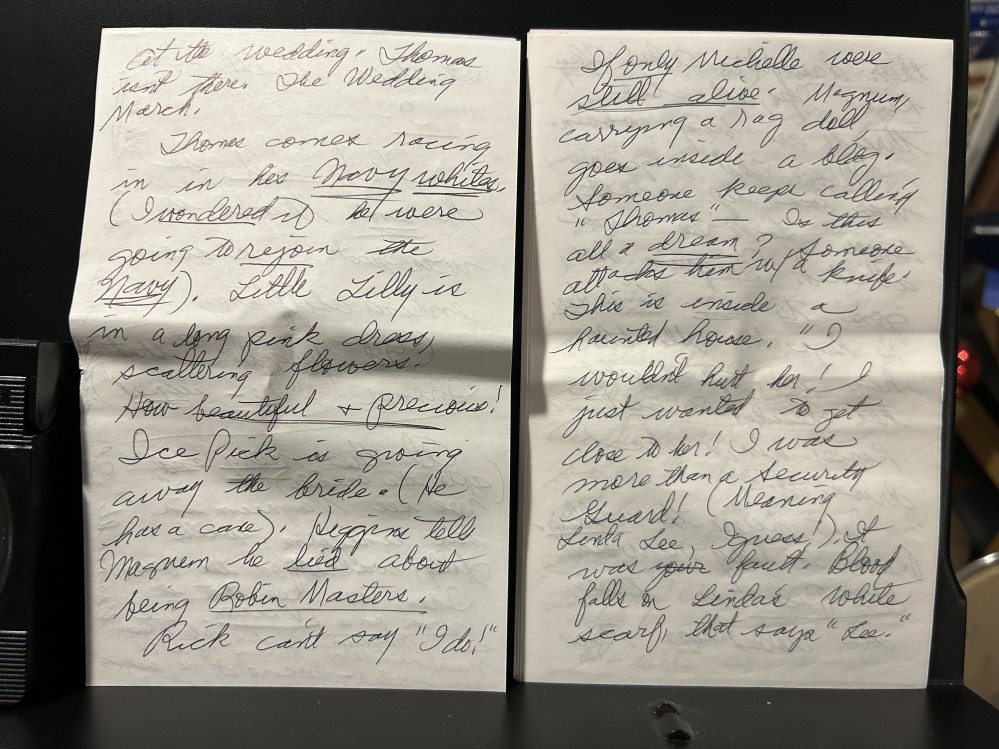 At the wedding. Thomas
isn't there. The Wedding
March.
Thomas comes racing
in in his Navy whites.
(I wondered if he were
going to rejoin the
Navy). Little Lilly is
in a long pink dress,
scattering flowers!
How beautiful + precious!
Ice Pick is giving
away the bride. (He
has a cane). Higgins tells
Magnum he lied about
being Robin Masters.
Rick can't say "I do!"
If only Michelle were
still alive. Magnum,
carrying a rag doll,
goes inside a bldg.
Someone keeps calling
"Thomas" — Is this
all a dream? Someone
attacks them w/ a knife.
This is inside a
haunted house. "I
wouldn't hurt her! I
just wanted to get
close to her! I was
more than a security
Guard! (Meaning
Linda Lee, I guess!). It
was your fault. Blood
falls on Linda's white
scarf, that says "Lee."